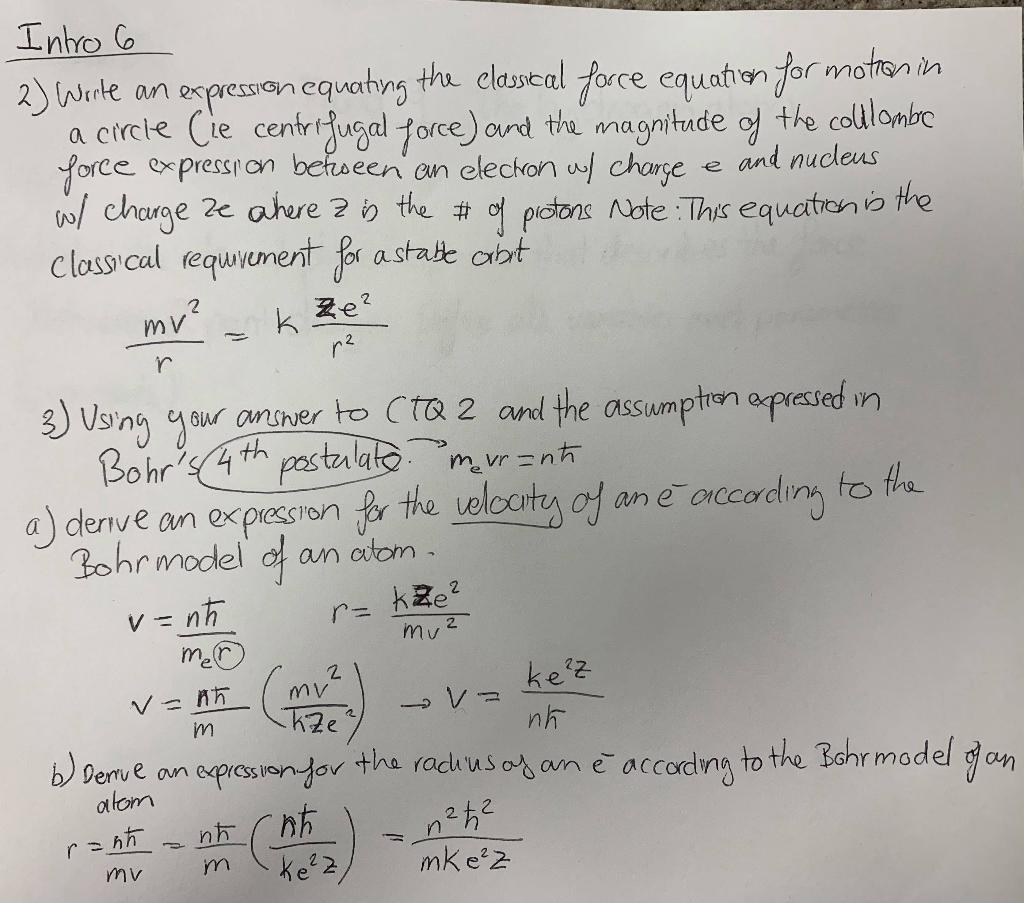 Intro 6
2) Write an expression equating the classical force equation for motion in
a circle (ie centrifugal force) and the magnitude of the coulombc
force expression between an electron w/ charge e and nucleus
w/ charge Ze where z is the # of protons Note: This equation is the
classical requirement for a stable orbit
mv²/r = k Ze²/r²
3) Using your answer to CTQ 2 and the assumption expressed in
Bohr's 4th postulate. → mₑvr = nħ
a) derive an expression for the velocity of an e⁻ according to the
Bohr model of an atom.
v = nħ/mₑr r = kZe²/mv²
v = nħ/m (mv²/kZe²) → v = ke²Z/nħ
b) Derive an expression for the radius of an e⁻ according to the Bohr model of an
atom
r = nħ/mv = nħ/m (nħ/ke²Z) = n²ħ²/mKe²Z